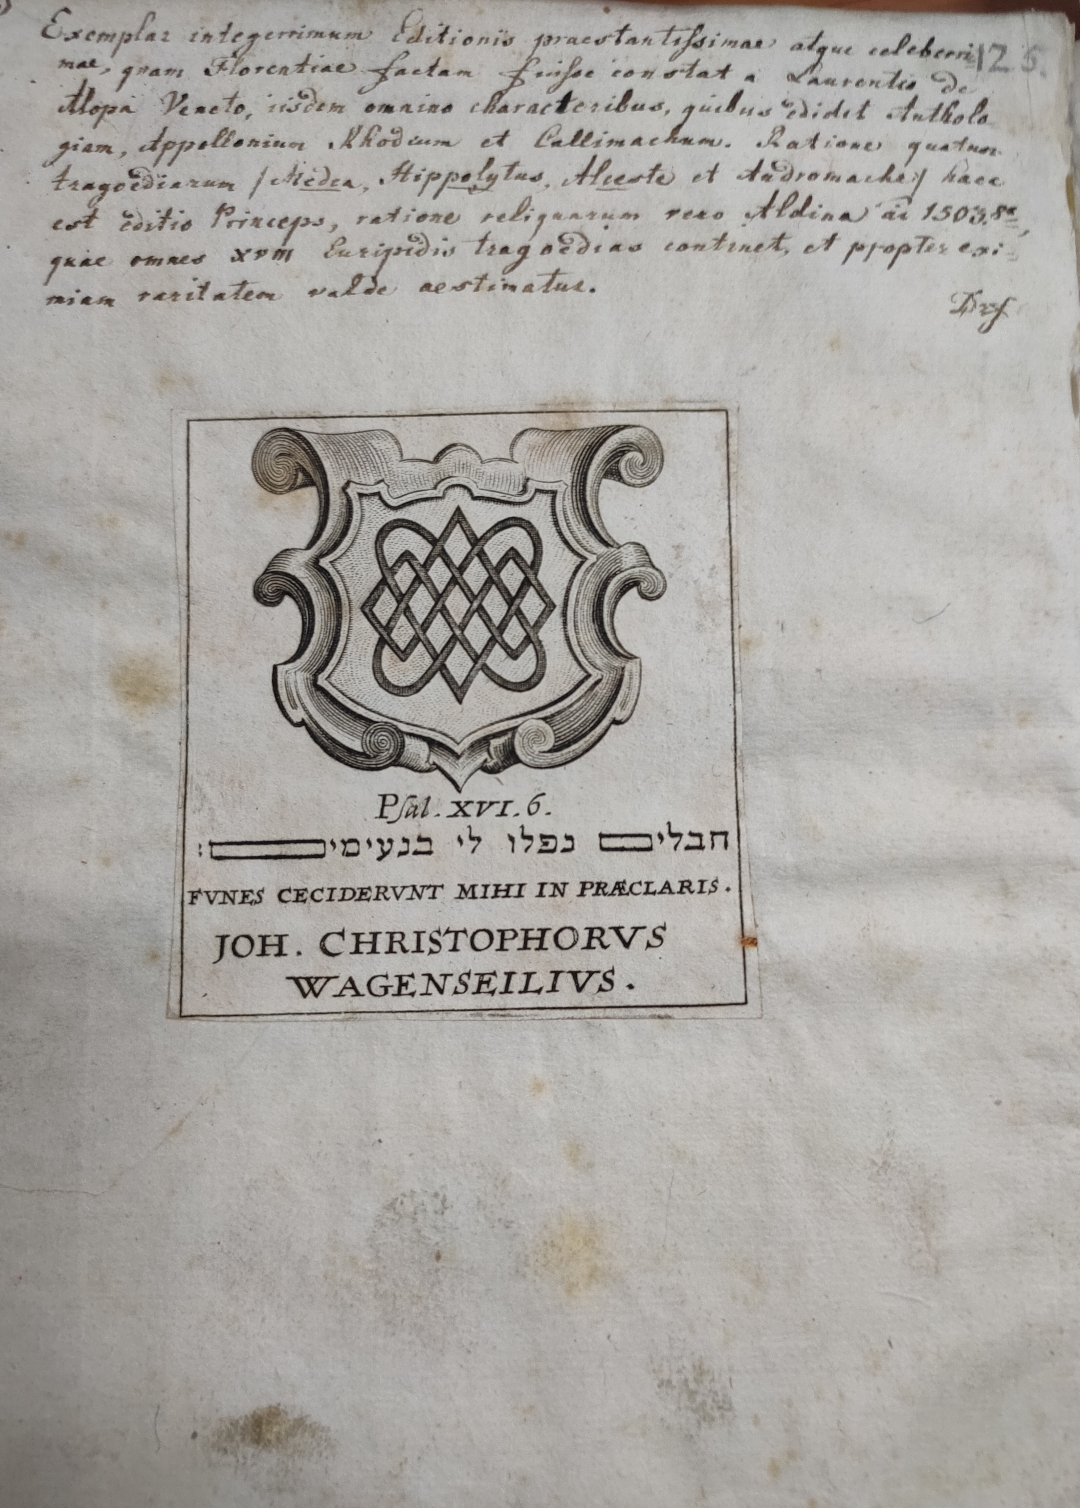 Exemplar integerrimum Editioniis praestantissimae atque celeberri
125.
mae, quam Florentiae factam fuisse constat a Laurentio de
Alopa Veneto, iisdem omnino characteribus, quibus edidit Antholo
giam, Appollonium Rhodium et Callimachum. Ratione quatuor
tragoediarum /Medea, Hippolytus, Alceste et Andromache/ haec
est editio Princeps, ratione reliquarum vero Aldina ai 1503.8º,
quae omnes XVIII Euripidis tragoedias continet, et propter exi-
miam raritatem valde aestimatur.
Psal. XVI. 6.
חבלים נפלו לי בנעימים:
FVNES CECIDERVNT MIHI IN PRÆCLARIS.
JOH. CHRISTOPHORVS
WAGENSEILIVS.